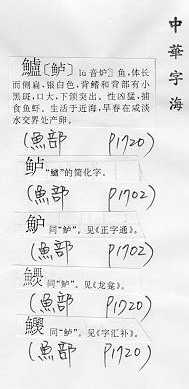 中華字海
鱸〔鲈〕lú 音炉 鱼，体长
而侧扁，银白色，背鳍和背部有小
黑斑，口大，下颌突出。性凶猛，捕
食鱼虾。生活于近海，早春在咸淡
水交界处产卵。
(魚部 P1720)
鲈 “鱸”的简化字。
(魚部 P1702)
鲈 同“鲈”。见《正字通》。
(魚部 P1702)
同“鲈”。见《龙龛》。
(魚部 P1720)
同“鲈”。见《字汇补》。
(魚部 P1720)